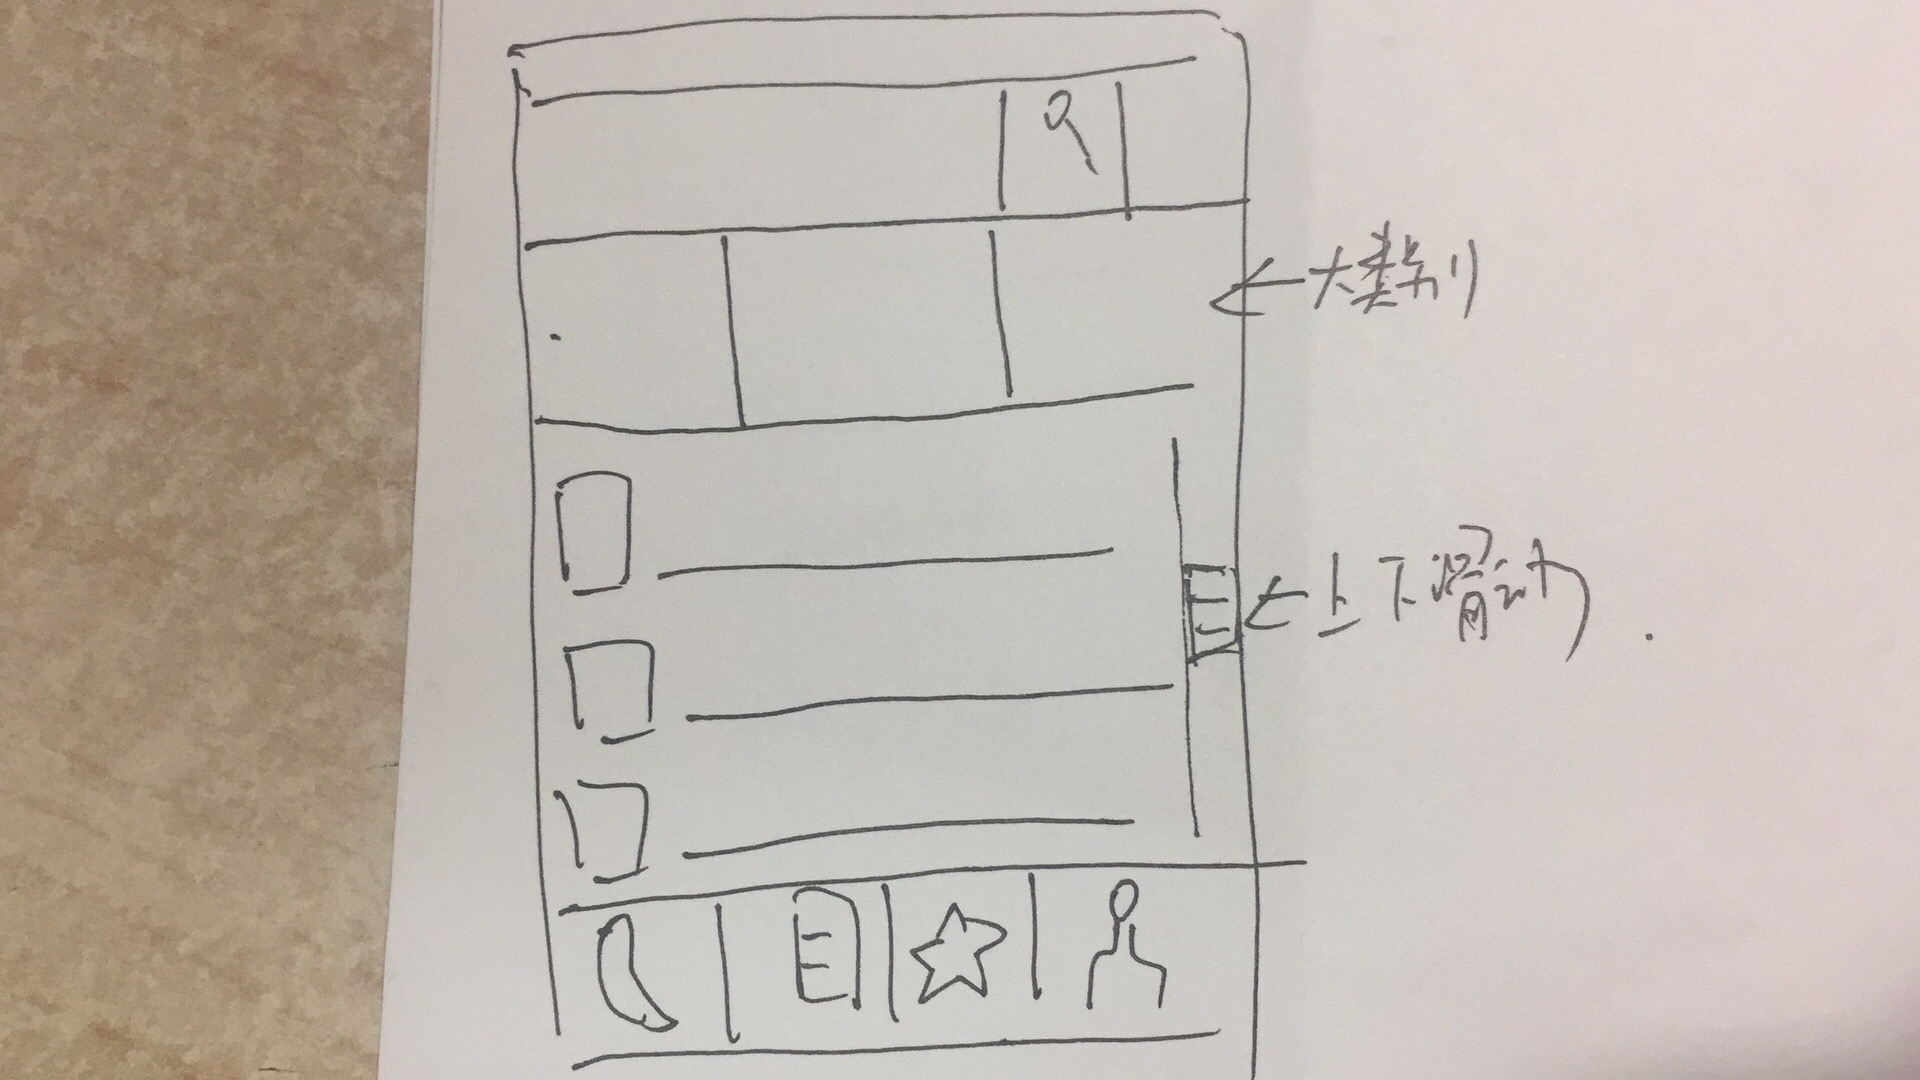 大类别
上下滑动